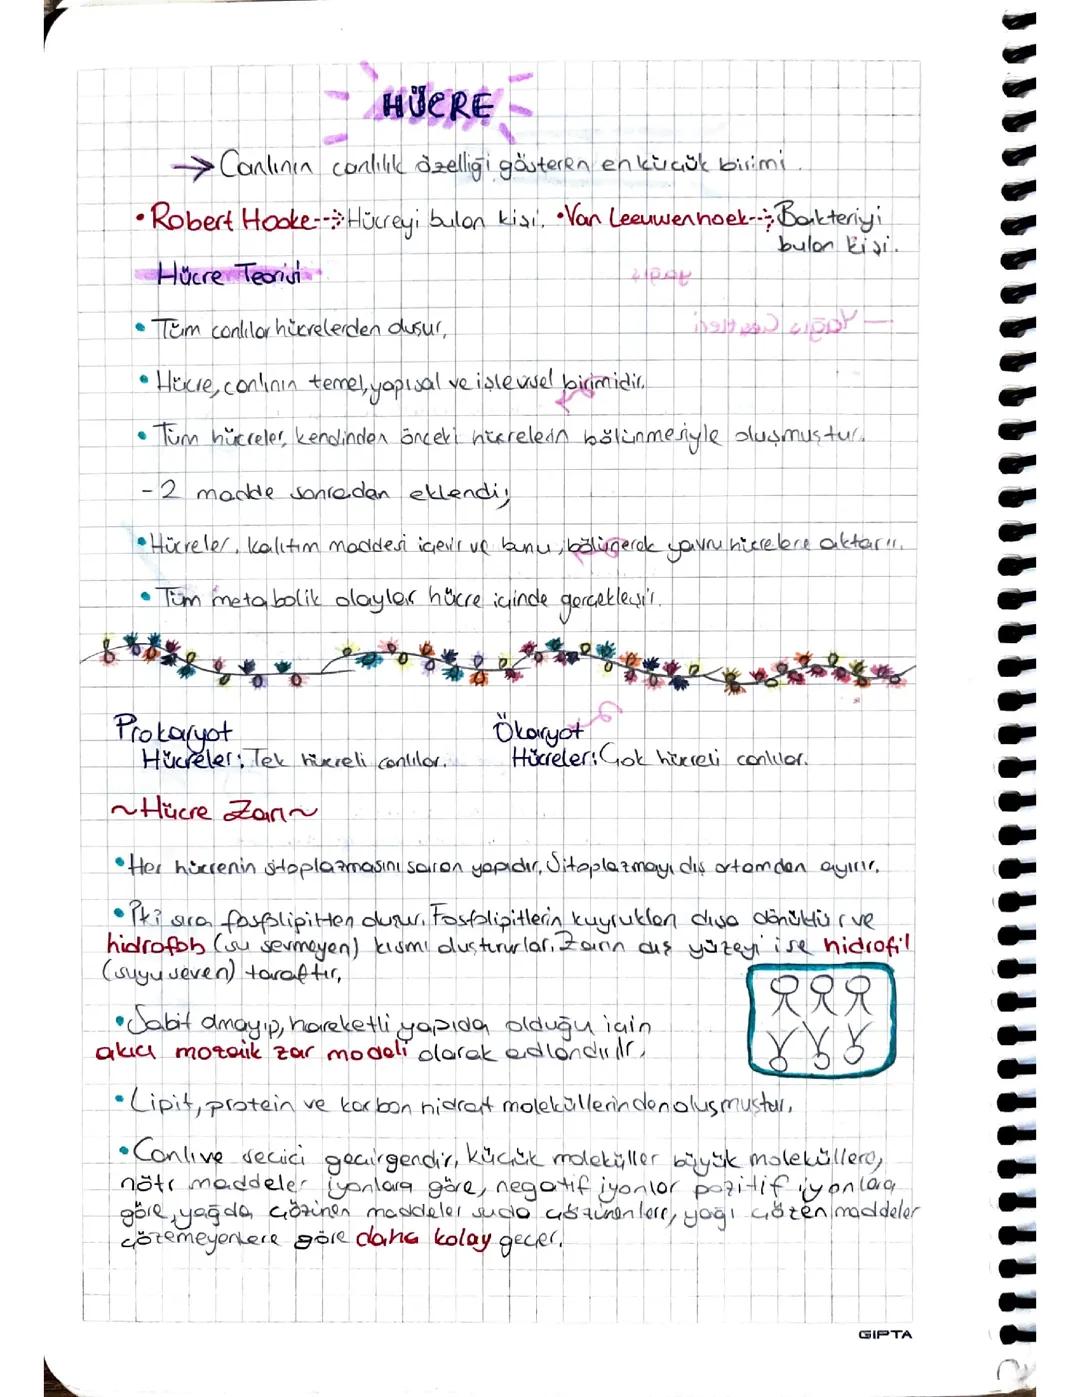 HÜCRE
→ Canlının canlılık özelliği gösteren en küçük birimi.
• Robert Hooke--> Hücreyi bulan kişi. • Van Leeuwenhoek--> Bakteriyi
bulan kişi.
Hücre Teorisi
• Tüm canlılar hücrelerden oluşur.
• Hücre, canlının temel, yapısal ve işlevsel birimidir.
• Tüm hücreler, kendinden önceki hücrelerin bölünmesiyle oluşmuştur.
- 2 madde sonradan eklendi;
• Hücreler, kalıtım maddesi içerir ve bunu, bölünerek yavru hücrelere aktarır.
• Tüm metabolik olaylar hücre içinde gerçekleşir.
Prokaryot
Hücreler: Tek hücreli canlılar.
Ökaryot
Hücreler: Çok hücreli canlılar.
~Hücre Zarı~
• Her hücrenin sitoplazmasını saran yapıdır. Sitoplazmayı dış ortamdan ayırır.
• İki sıra fosfolipitten oluşur. Fosfolipitlerin kuyrukları dışa dönüktür ve
hidrofob (su sevmeyen) kısmı oluştururlar. Zarın dış yüzeyi ise hidrofil
(suyu seven) taraftır.
• Sabit olmayıp, hareketli yapıda olduğu için
akıcı mozaik zar modeli olarak adlandırılır.
• Lipit, protein ve karbon hidrat moleküllerinden oluşmuştur.
• Canlı ve seçici geçirgendir. Küçük moleküller büyük moleküllere,
nötr maddeler iyonlara göre, negatif iyonlar pozitif iyonlara
göre, yağda çözünen maddeler suda çözünenlere, yağı çözen maddeler
çözemeyenlere göre daha kolay geçer.
GIPTA